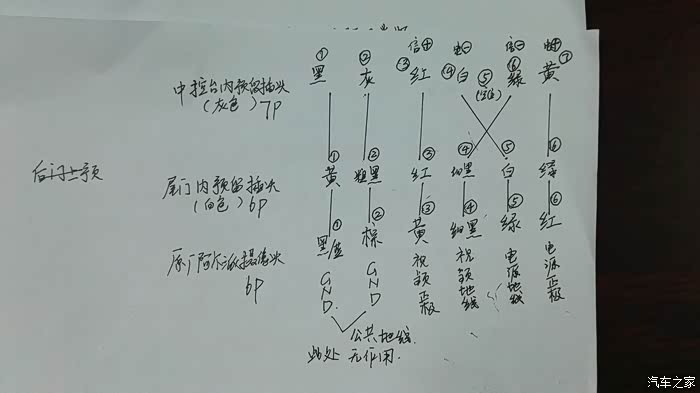 信+ 电- 信- 电+
① ② ③ ④ ⑤ ⑥ ⑦
中控台内预留插头 黑 灰 红 白 (空位) 绿 黄
(灰色) 7P
① ② ③ ④ ⑤ ⑥
后门上预
尾门内预留插头 黄 粗黑 红 细黑 白 绿
(白色) 6P
① ② ③ ④ ⑤ ⑥
黑 棕 黄 细黑 绿 红
原厂阿尔派摄像头
6P
GND GND 视频正极 视频地线 电源地线 电源正极
公共地线
此处 无作用.
汽车之家